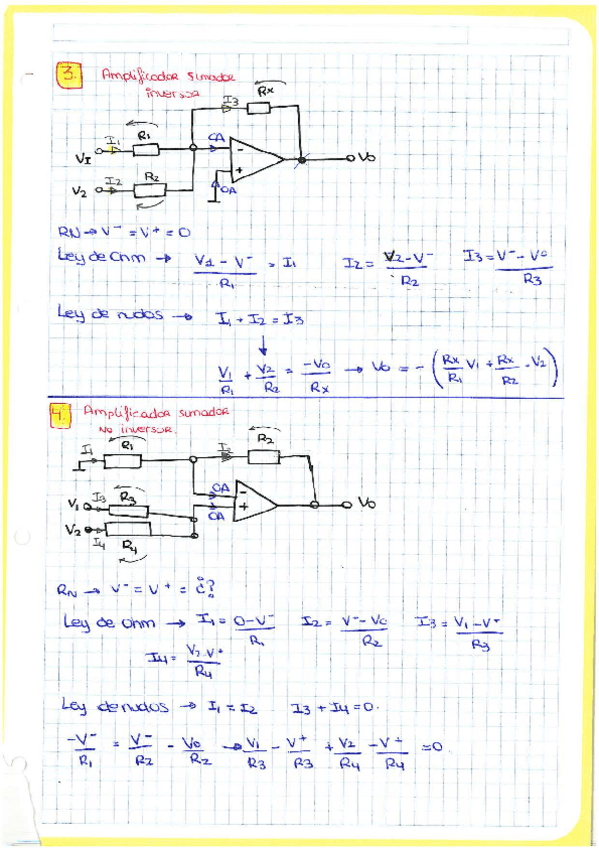 3. Amplificador sumador
inversor
I3 Rx
I1 R1 OA - V0
VI
V2 I2 R2 + OA
RN → V- = V+ = 0
Ley de Ohm → V1 - V- / R1 = I1 I2 = V2 - V- / R2 I3 = V- - V0 / R3
Ley de nudos → I1 + I2 = I3
↓
V1/R1 + V2/R2 = -V0/Rx → V0 = - (Rx/R1 V1 + Rx/R2 · V2)
4. Amplificador sumador
no inversor.
I1 R1 I2 R2
OA - V0
V1 I3 R3 OA +
V2 I4 R4
RN → V- = V+ = ¿?
Ley de Ohm → I1 = 0 - V- / R1 I2 = V- - V0 / R2 I3 = V1 - V+ / R3
I4 = V2 - V+ / R4
Ley de nudos → I1 = I2 I3 + I4 = 0.
-V-/R1 = V-/R2 - V0/R2 → V1/R3 - V+/R3 + V2/R4 - V+/R4 = 0.